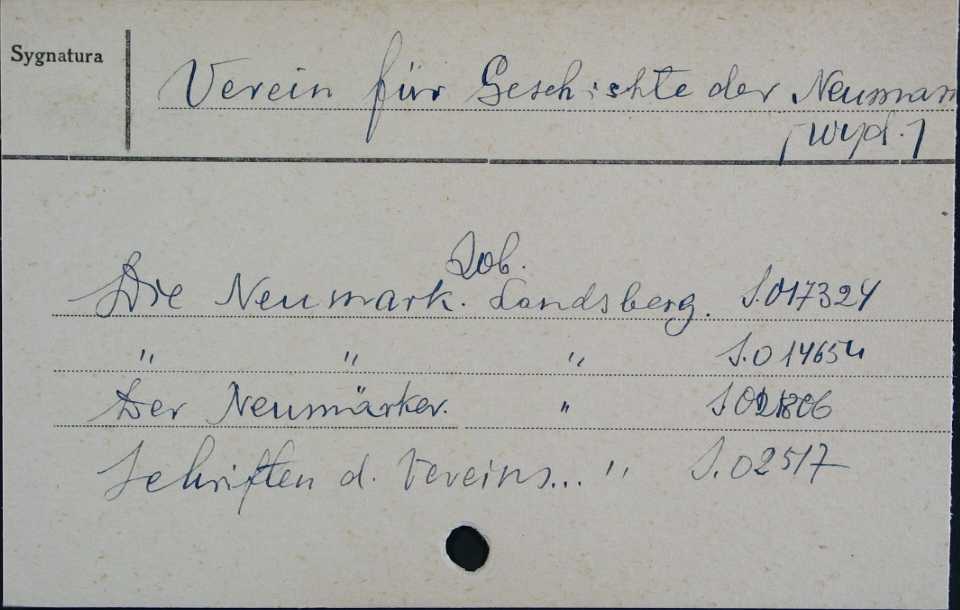 Sygnatura
Verein für Geschichte der Neumar
[wyd.]
Job.
Die Neumark. Landsberg. S.017324
" " " S.014654
Der Neumärker. "
Schriften d. Vereins... " S.02517